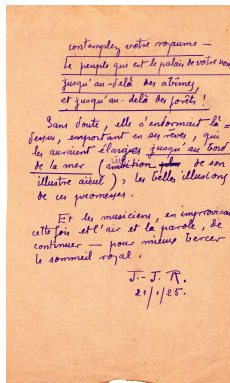 contemplez votre royaume —
Le peuple qui est le palais de votre nom
jusqu'au-delà des abîmes,
et jusqu'au-delà des forêts !
Sans doute, elle s'endormait là-
dessus, emportant en ses rêves, qui
les auraient élargies jusqu'au bord
de la mer (ambition de son
illustre aïeul), les belles illusions
de ces promesses.
Et les musiciens, en improvisant
cette fois et l'air et la parole, de
continuer — pour mieux bercer
le sommeil royal.
J.-J. R.
21/1/25.